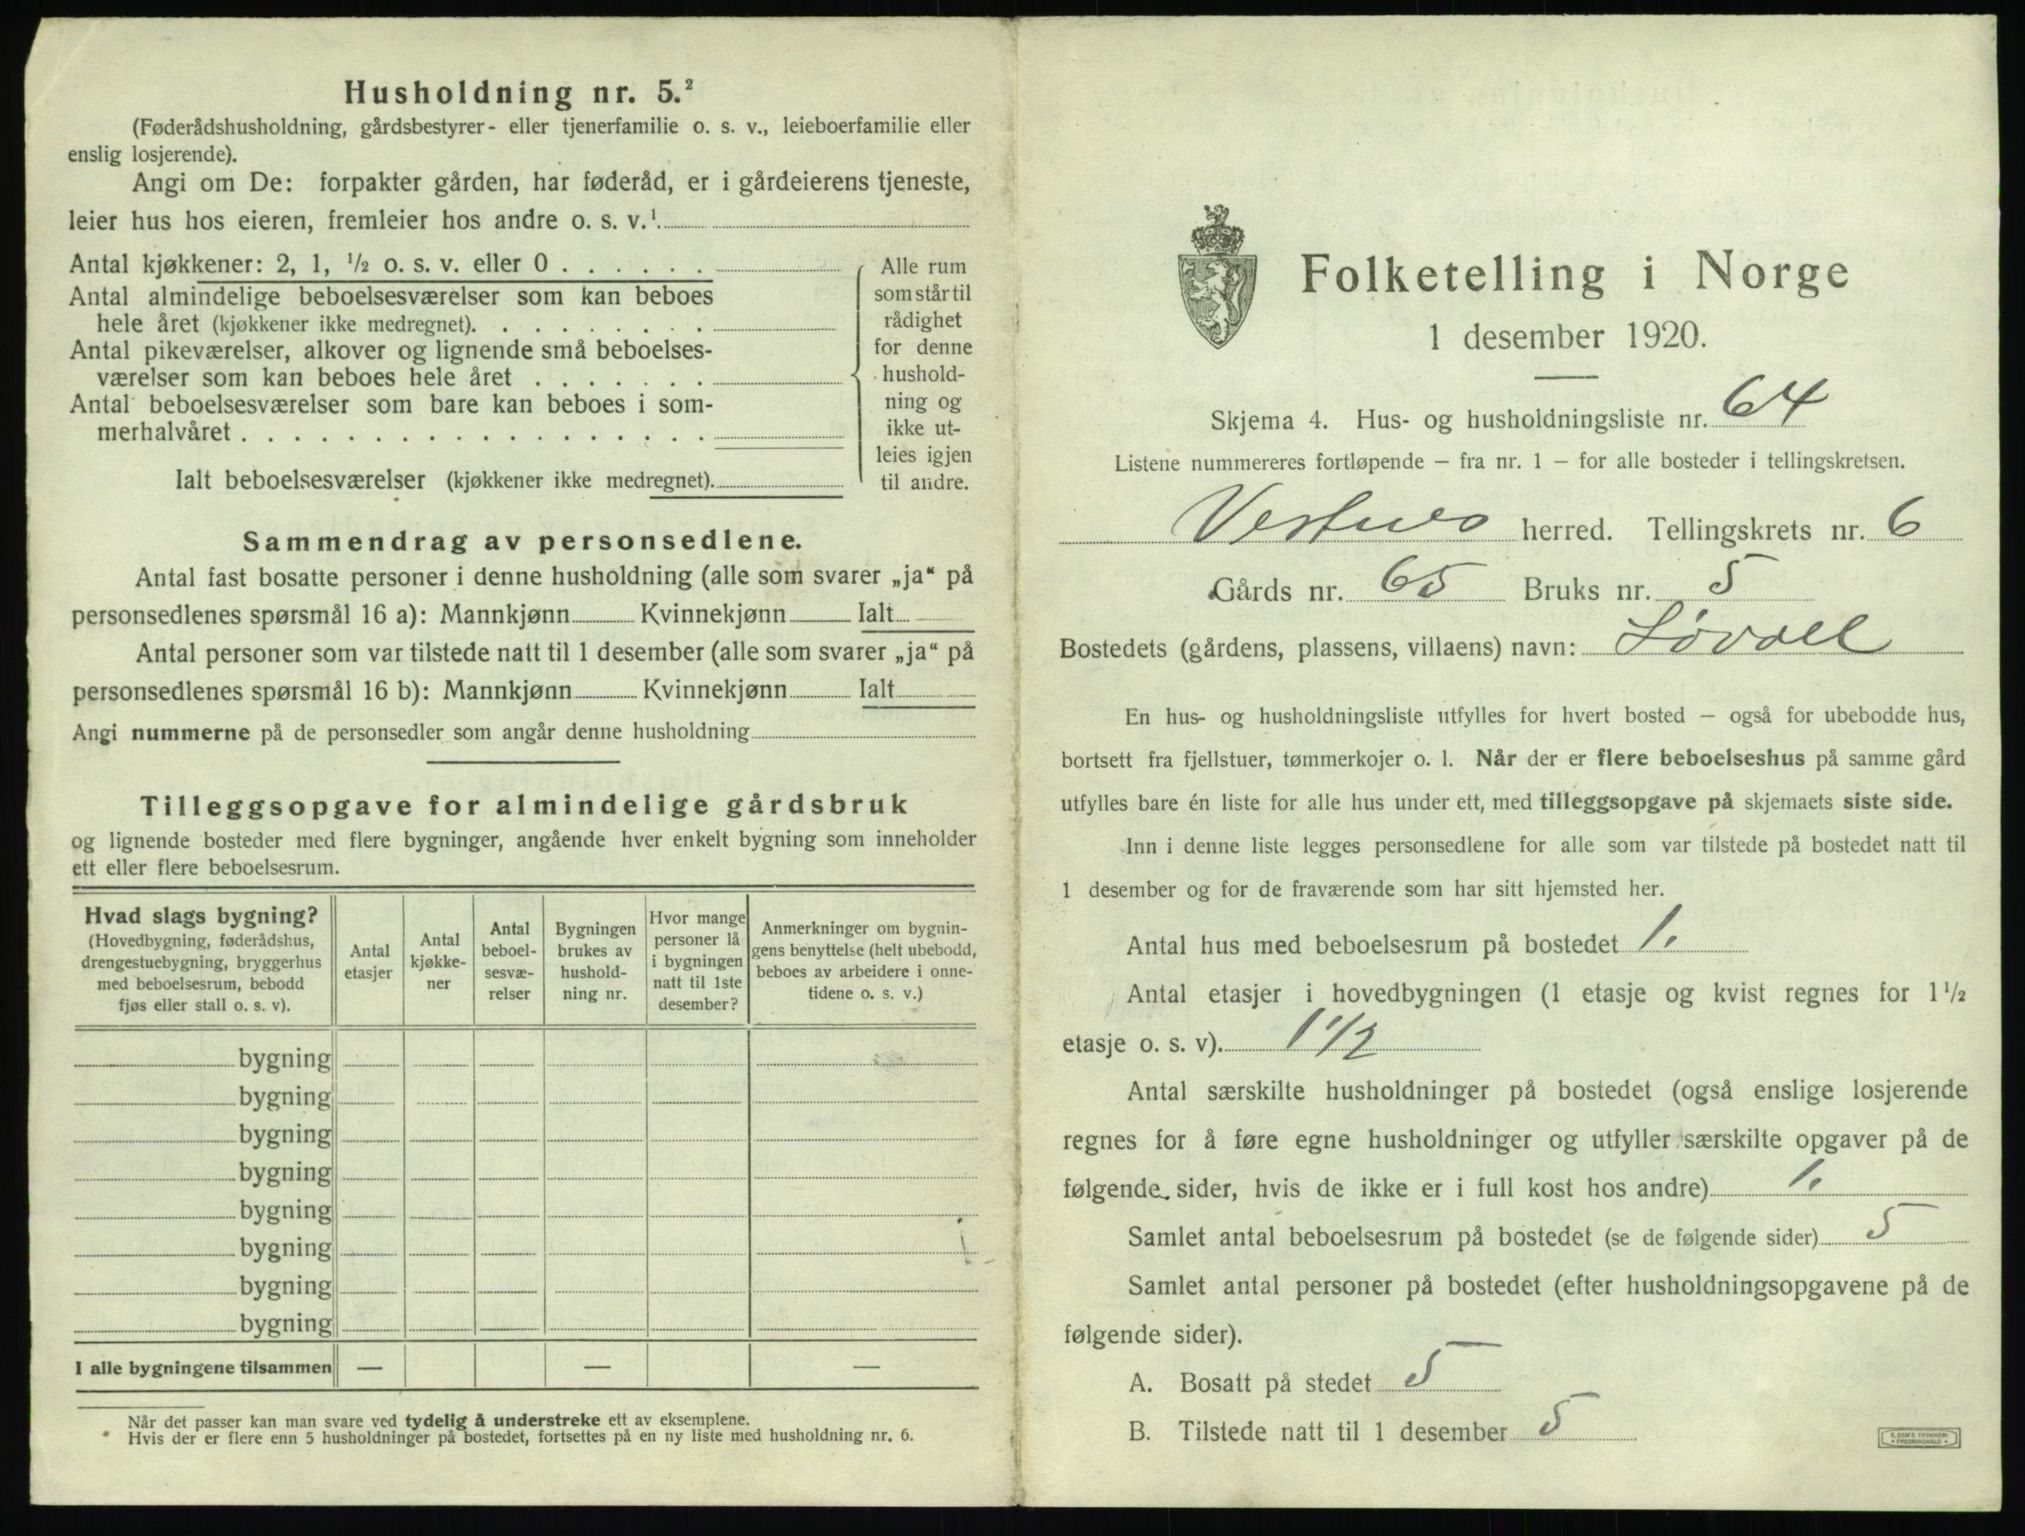 Husholdning nr. 5.²
(Føderådshusholdning, gårdsbestyrer- eller tjenerfamilie o. s. v., leieboerfamilie eller
enslig losjerende).
Angi om De: forpakter gården, har føderåd, er i gårdeierens tjeneste,
leier hus hos eieren, fremleier hos andre o. s. v.¹
Antal kjøkkener: 2, 1, ½ o. s. v. eller 0 . . . . . .
Antal almindelige beboelsesværelser som kan beboes
hele året (kjøkkener ikke medregnet). . . . . . . . .
Antal pikeværelser, alkover og lignende små beboelses-
værelser som kan beboes hele året . . . . . . .
Antal beboelsesværelser som bare kan beboes i som-
merhalvåret . . . . . . . . . . . . . . . . . .
Ialt beboelsesværelser (kjøkkener ikke medregnet).
Alle rum
som står til
rådighet
for denne
hushold-
ning og
ikke ut-
leies igjen
til andre.
Sammendrag av personsedlene.
Antal fast bosatte personer i denne husholdning (alle som svarer „ja“ på
personsedlenes spørsmål 16 a): Mannkjønn Kvinnekjønn Ialt
Antal personer som var tilstede natt til 1 desember (alle som svarer „ja“ på
personsedlenes spørsmål 16 b): Mannkjønn Kvinnekjønn Ialt
Angi nummerne på de personsedler som angår denne husholdning
Tilleggsopgave for almindelige gårdsbruk
og lignende bosteder med flere bygninger, angående hver enkelt bygning som inneholder
ett eller flere beboelsesrum.
Hvad slags bygning?
(Hovedbygning, føderådshus,
drengestuebygning, bryggerhus
med beboelsesrum, bebodd
fjøs eller stall o. s. v).
Antal
etasjer
Antal
kjøkke-
ner
Antal
beboel-
sesvæ-
relser
Bygningen
brukes av
hushold-
ning nr.
Hvor mange
personer lå
i bygningen
natt til 1ste
desember?
Anmerkninger om bygnin-
gens benyttelse (helt ubebodd,
beboes av arbeidere i onne-
tidene o. s. v.)
bygning
bygning
bygning
bygning
bygning
bygning
bygning
bygning
I alle bygningene tilsammen — — —
Når det passer kan man svare ved tydelig å understreke ett av eksemplene.
Hvis der er flere enn 5 husholdninger på bostedet, fortsettes på en ny liste med husholdning nr. 6.
Folketelling i Norge
1 desember 1920.
Skjema 4. Hus- og husholdningsliste nr. 64
Listene nummereres fortløpende – fra nr. 1 – for alle bosteder i tellingskretsen.
Vestnes herred. Tellingskrets nr. 6
Gårds nr. 65 Bruks nr. 5
Bostedets (gårdens, plassens, villaens) navn: Løvoll
En hus- og husholdningsliste utfylles for hvert bosted – også for ubebodde hus,
bortsett fra fjellstuer, tømmerkojer o. l. Når der er flere beboelseshus på samme gård
utfylles bare én liste for alle hus under ett, med tilleggsopgave på skjemaets siste side.
Inn i denne liste legges personsedlene for alle som var tilstede på bostedet natt til
1 desember og for de fraværende som har sitt hjemsted her.
Antal hus med beboelsesrum på bostedet 1.
Antal etasjer i hovedbygningen (1 etasje og kvist regnes for 1 ½
etasje o. s. v). 1 1/2
Antal særskilte husholdninger på bostedet (også enslige losjerende
regnes for å føre egne husholdninger og utfyller særskilte opgaver på de
følgende sider, hvis de ikke er i full kost hos andre) 1.
Samlet antal beboelsesrum på bostedet (se de følgende sider) 5
Samlet antal personer på bostedet (efter husholdningsopgavene på de
følgende sider).
A. Bosatt på stedet 5
B. Tilstede natt til 1 desember 5